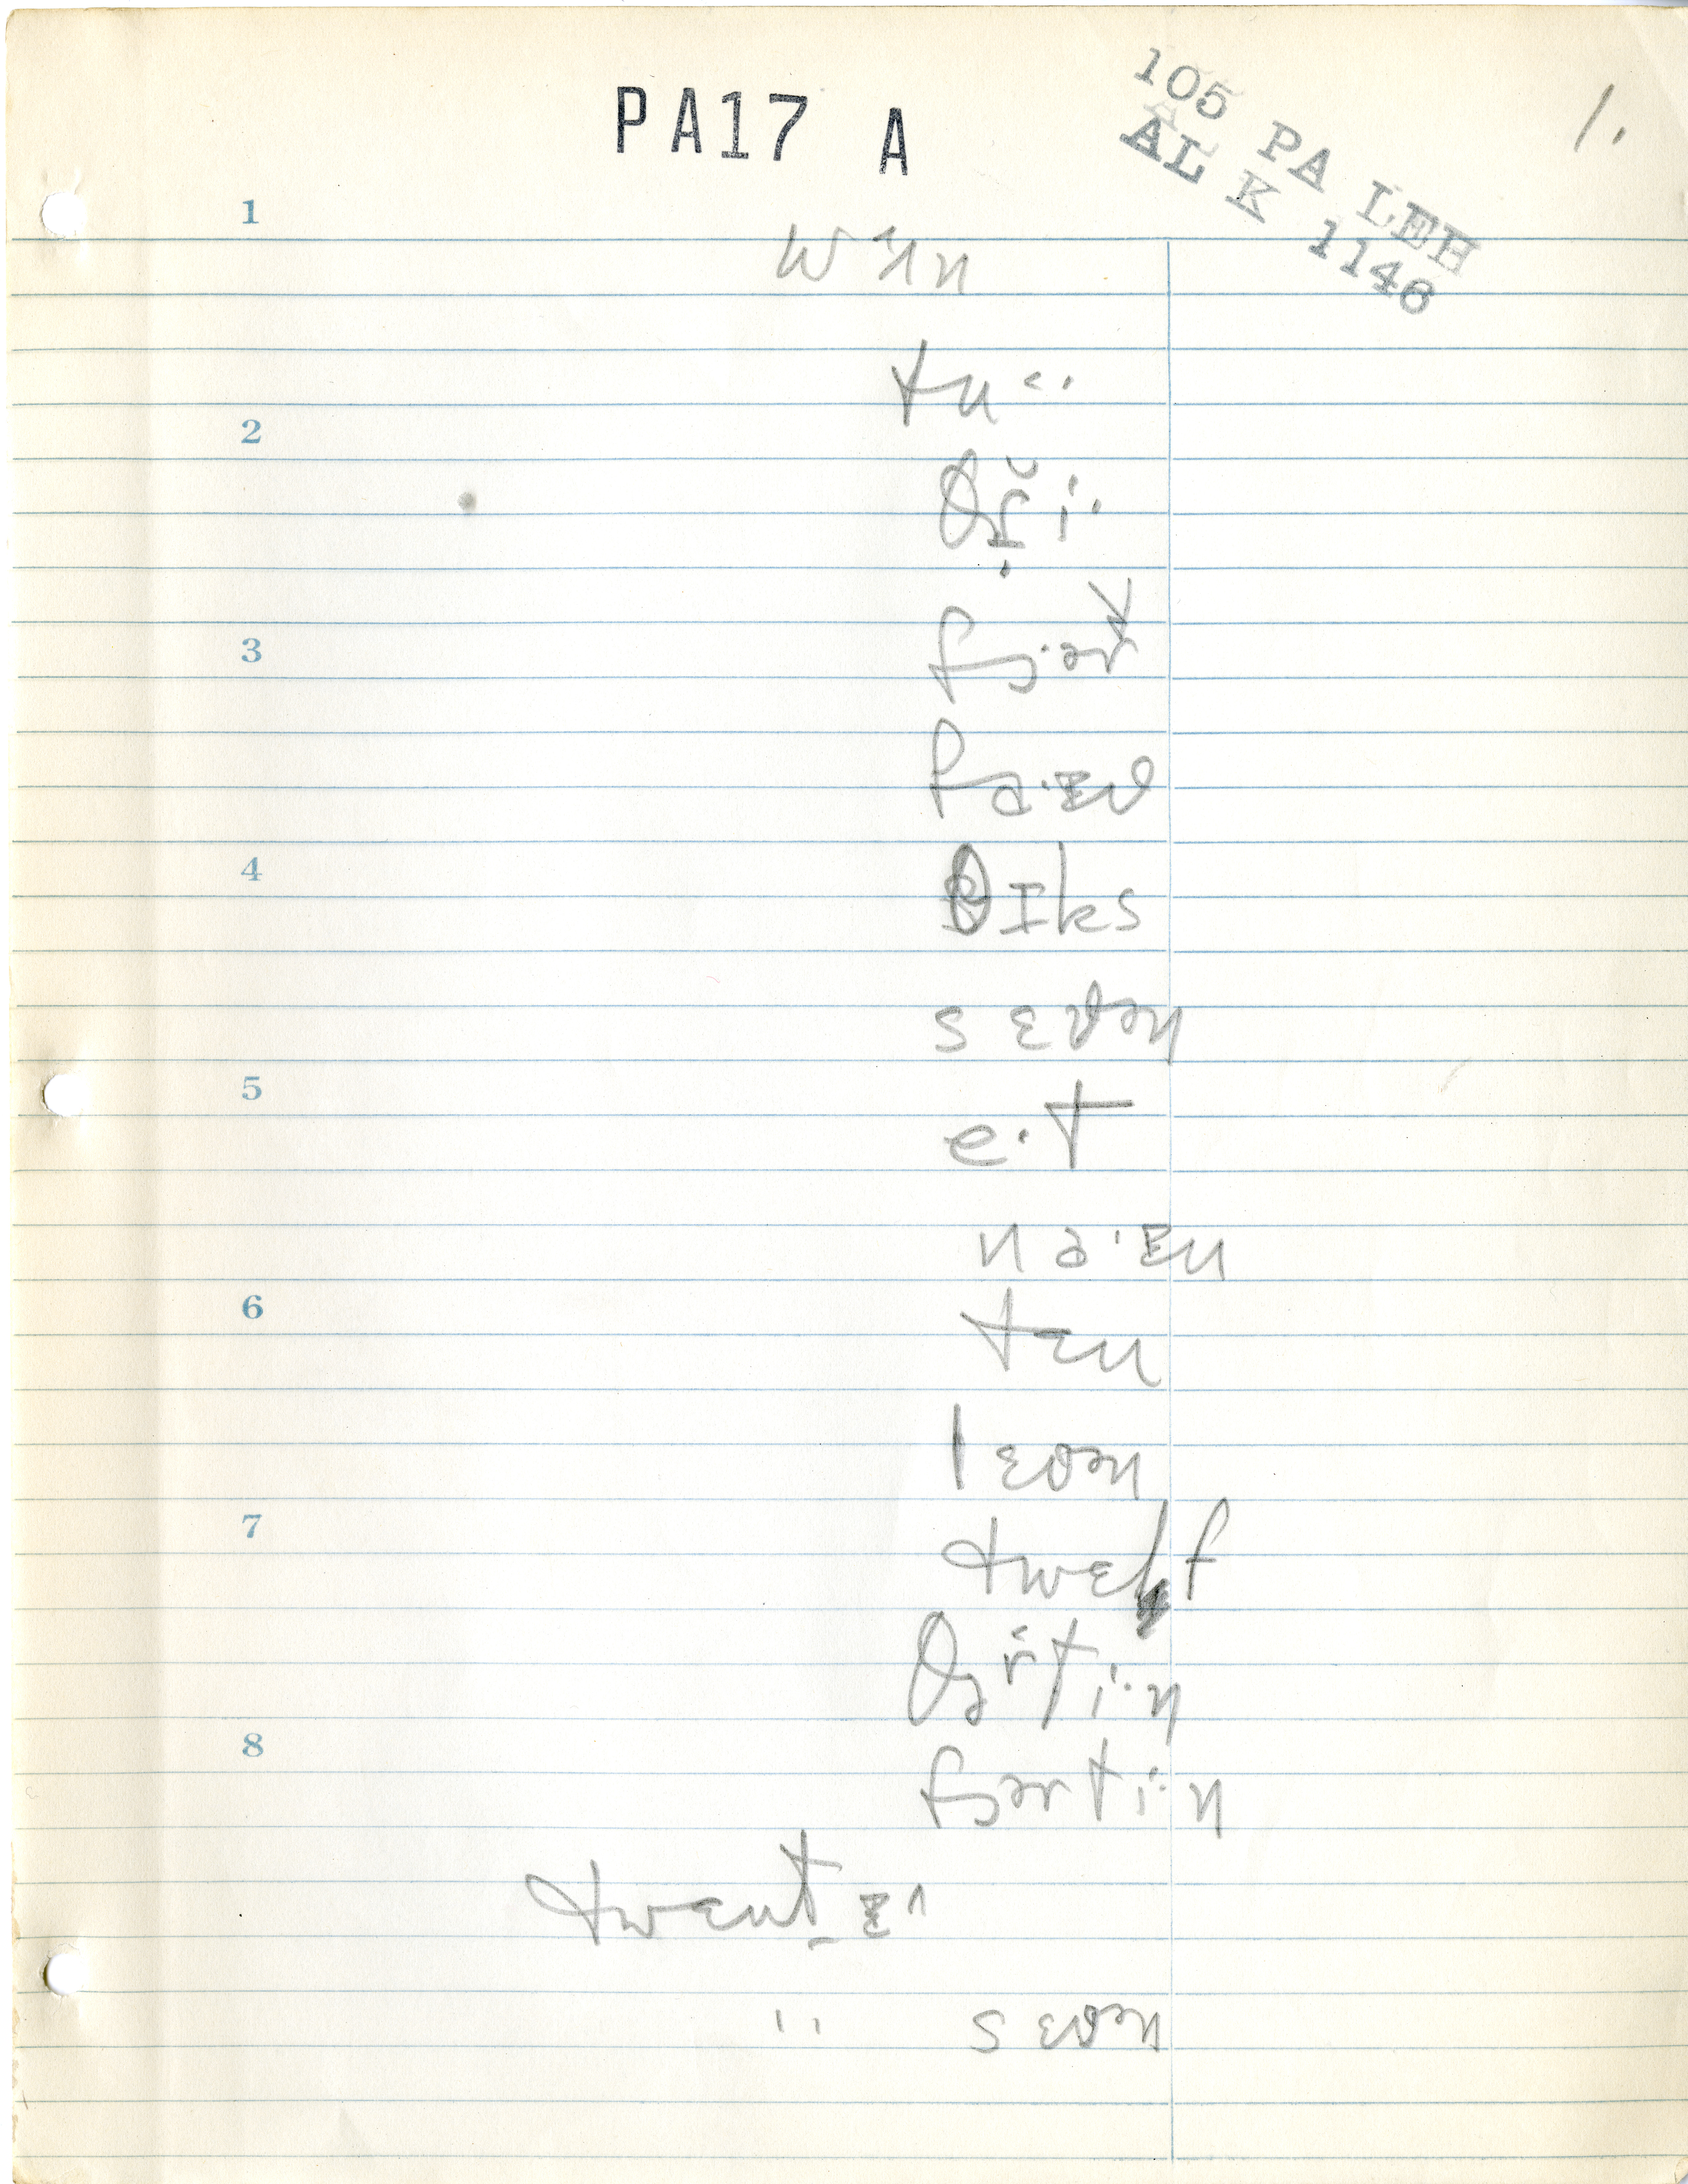 PA17 A
105 PA LEH
AL K 1146
1.
1
2
3
4
5
6
7
8
tu˂·
θɪksˈ
fa·ɪv
sɛvən
e·t
na·ɪn
tɛn
lɛvən
twɛlf
θə˂rti·n
fərti·n
twɛnt̠ɪ˄
" sɛvən